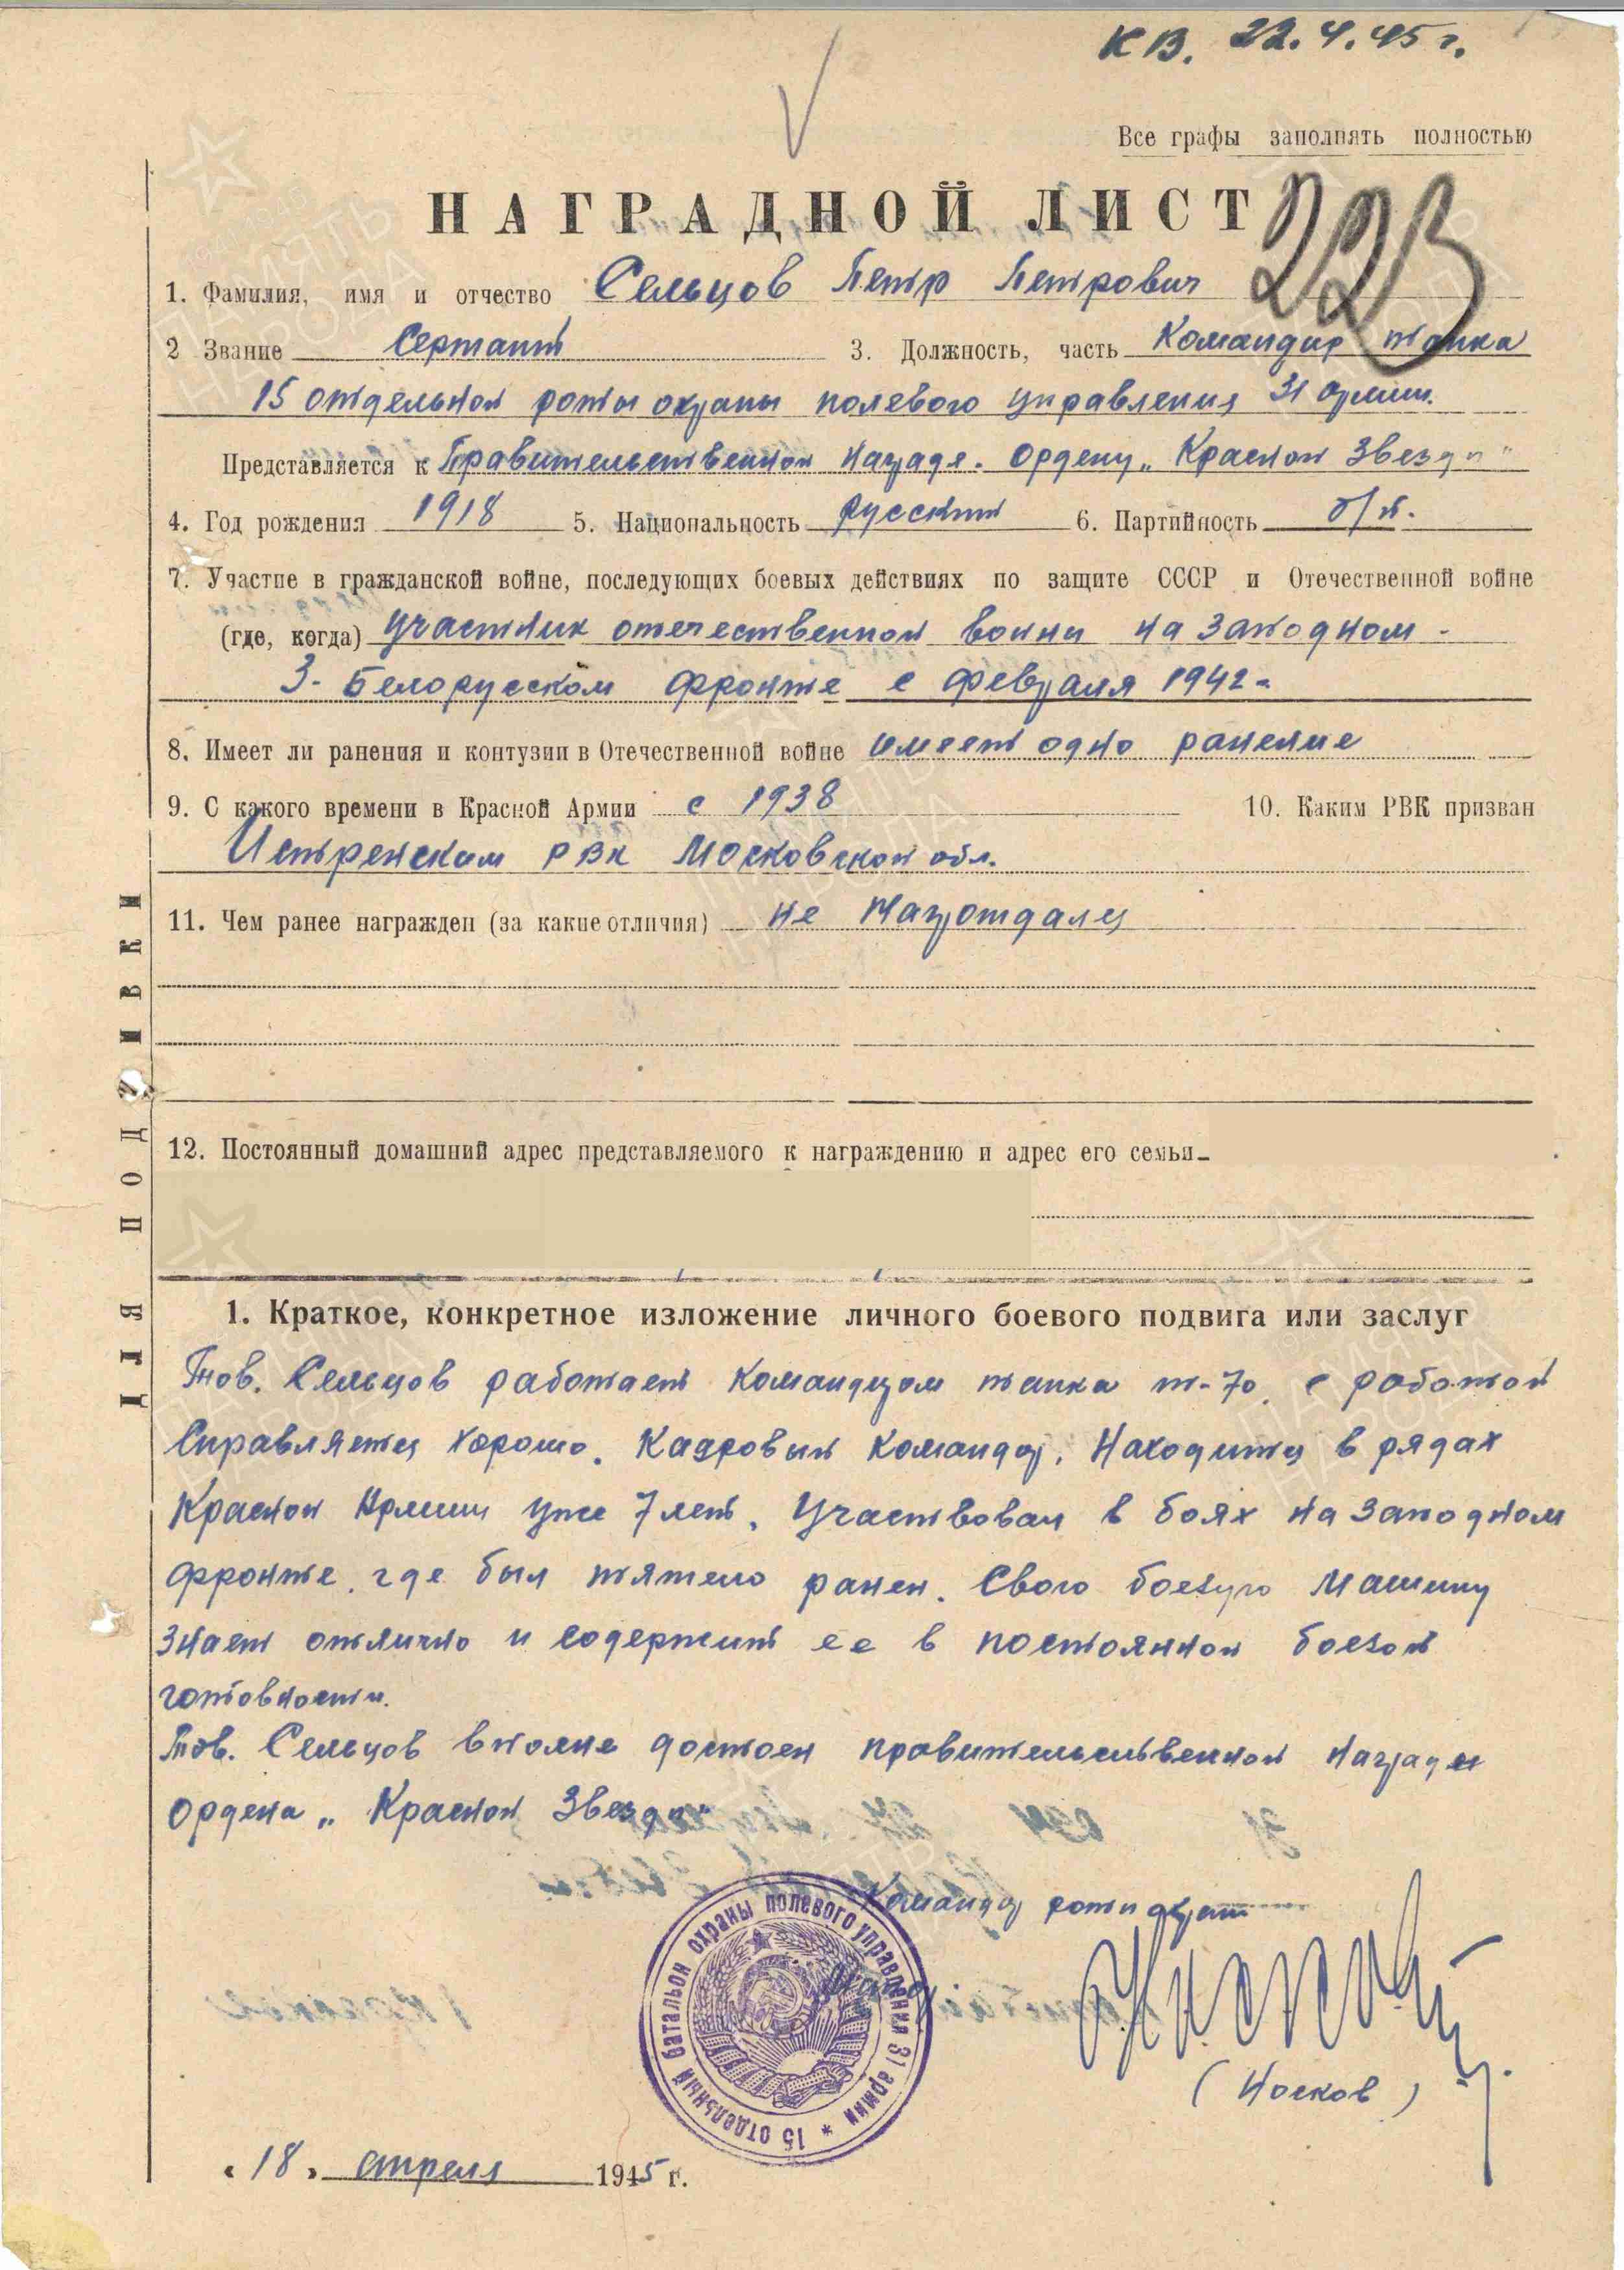 КВ. 22.4.45 г.
Все графы заполнять полностью
НАГРАДНОЙ ЛИСТ
1. Фамилия, имя и отчество Сельцов Петр Петрович
2 Звание Сержант 3. Должность, часть Командир танка
15 отдельной роты охраны полевого управления 31 Армии.
Представляется к Правительственной награде. Ордену „Красной Звезды"
4. Год рождения 1918 5. Национальность русский 6. Партийность б/п.
7. Участие в гражданской войне, последующих боевых действиях по защите СССР и Отечественной войне
(где, когда) Участник отечественной войны на Западном -
3- Белорусском фронте с февраля 1942-
8. Имеет ли ранения и контузии в Отечественной войне имеет одно ранение
9. С какого времени в Красной Армии с 1938 10. Каким РВК призван
Истренским РВК Московской обл.
11. Чем ранее награжден (за какие отличия) не награждался
12. Постоянный домашний адрес представляемого к награждению и адрес его семьи
1. Краткое, конкретное изложение личного боевого подвига или заслуг
Тов. Сельцов работает командиром танка т-70, с работой
Справляется хорошо. Кадровый командир. Находится в рядах
Красной Армии уже 7 лет. Участвовал в боях на Западном
фронте, где был тяжело ранен. Свою боевую машину
знает отлично и содержит ее в постоянной боевой
готовности.
Тов. Сельцов вполне достоен правительственной награды
ордена „Красной Звезды"
Командир роты охраны
15 отдельный батальон охраны полевого управления 31 армии *
(Носков)
«18» апреля 1945 г.
ДЛЯ ПОДШИВКИ
ПАМЯТЬ НАРОДА